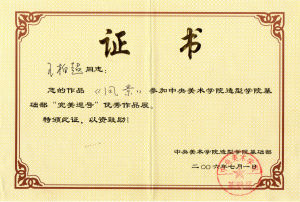 证书
王柏超同志：
您的作品《风景》参加中央美术学院造型学院基
础部“完美逗号”优秀作品展。
特颁此证，以资鼓励！
中央美术学院造型学院基础部
二〇〇六年七月一日